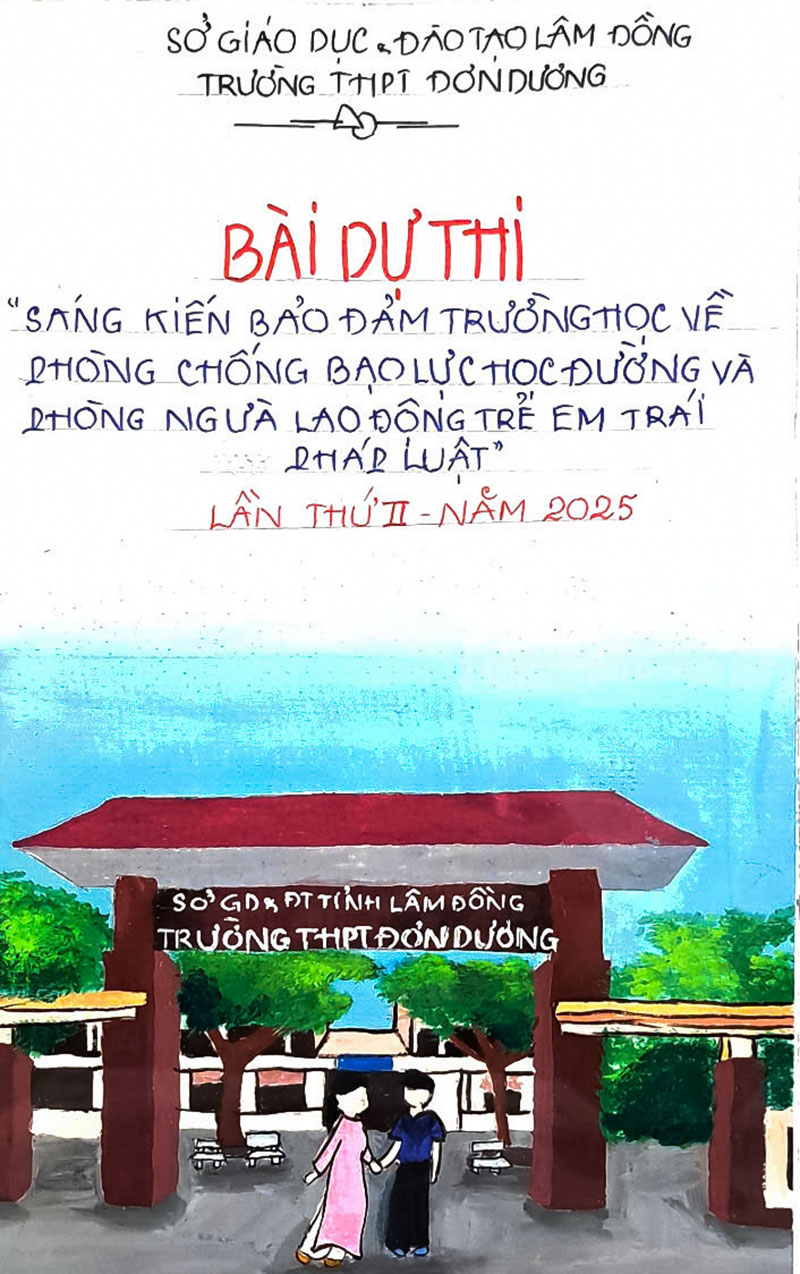 SỞ GIÁO DỤC & ĐÀO TẠO LÂM ĐỒNG
TRƯỜNG THPT ĐƠN DƯƠNG
BÀI DỰ THI
"SÁNG KIẾN BẢO ĐẢM TRƯỜNG HỌC VỀ
PHÒNG CHỐNG BẠO LỰC HỌC ĐƯỜNG VÀ
PHÒNG NGƯÀ LAO ĐỘNG TRẺ EM TRÁI
PHÁP LUẬT"
LẦN THỨ II - NĂM 2025
SỞ GD & ĐT TỈNH LÂM ĐỒNG
TRƯỜNG THPT ĐƠN DƯƠNG